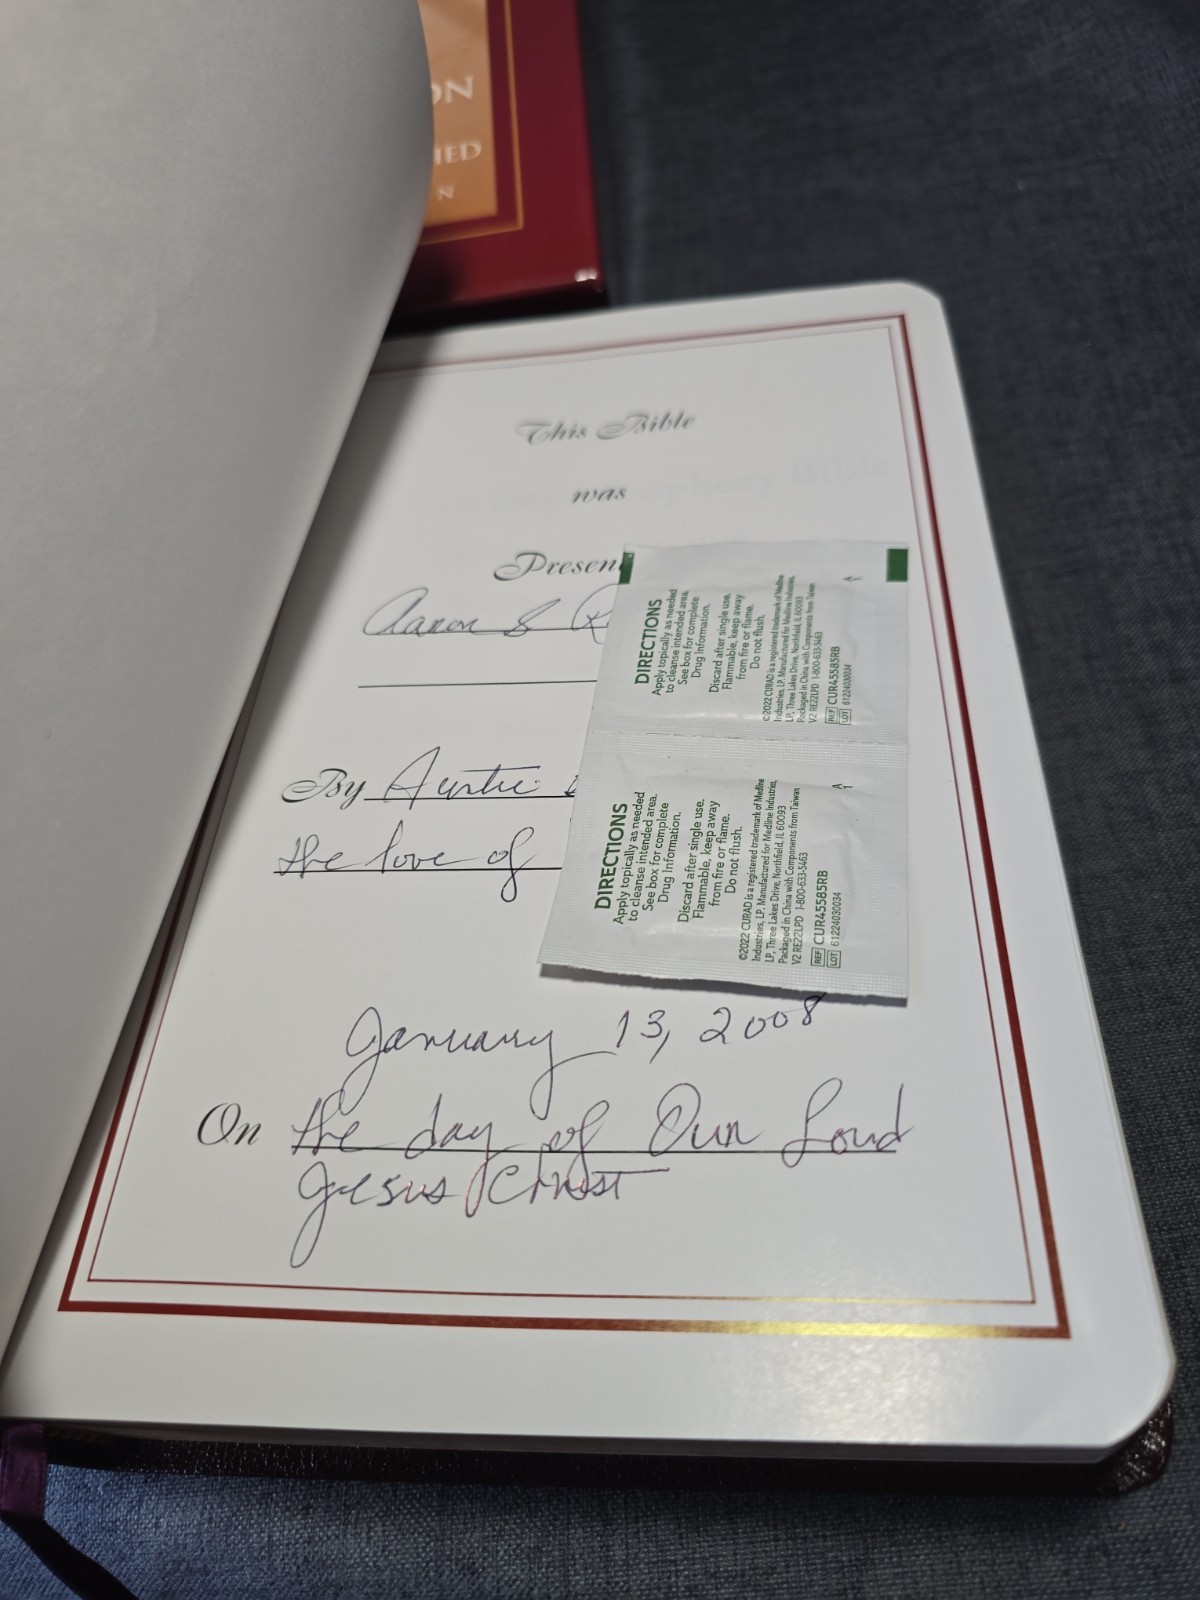 ON
IED
N
This Bible
was
Presen
Aaron & R
By Auntie
the love of
DIRECTIONS
Apply topically as needed
to cleanse intended area.
See box for complete
Drug Information.
Discard after single use.
Flammable, keep away
from fire or flame.
Do not flush.
©2022 CURAD is a registered trademark of Medline
Industries, LP. Manufactured for Medline Industries,
LP, Three Lakes Drive, Northfield, IL 60093
Packaged in China with Components from Taiwan
V2 RE22LPD 1-800-633-5463
REF CUR45585RB
LOT 61224030034
DIRECTIONS
Apply topically as needed
to cleanse intended area.
See box for complete
Drug Information.
Discard after single use.
Flammable, keep away
from fire or flame.
Do not flush.
©2022 CURAD is a registered trademark of Medline
Industries, LP. Manufactured for Medline Industries,
LP, Three Lakes Drive, Northfield, IL 60093
Packaged in China with Components from Taiwan
V2 RE22LPD 1-800-633-5463
REF CUR45585RB
LOT 61224030034
January 13, 2008
On the day of Our Lord
Jesus Christ